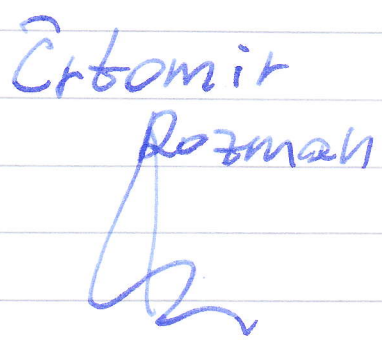 Črtomir
Rozman